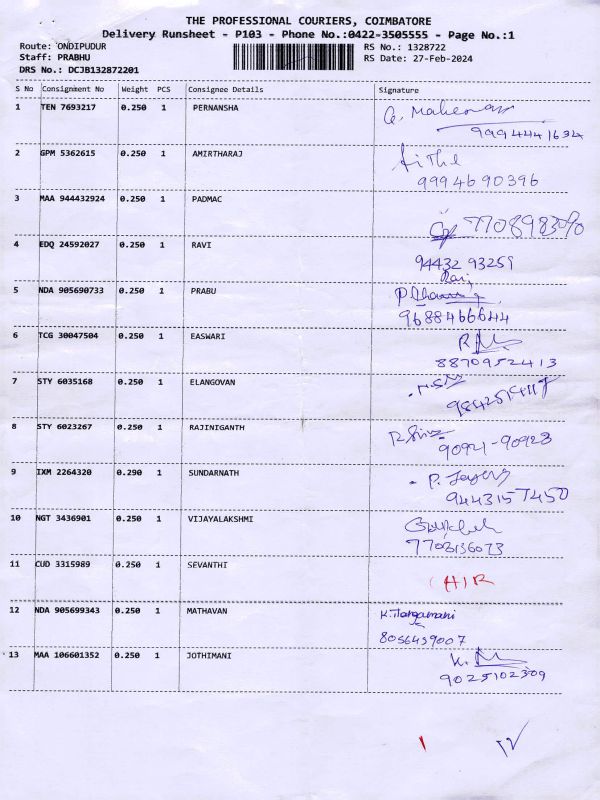 THE PROFESSIONAL COURIERS, COIMBATORE
Delivery Runsheet - P103 - Phone No.:0422-3505555 - Page No.:1
Route: ONDIPUDUR RS No.: 1328722
Staff: PRABHU RS Date: 27-Feb-2024
DRS No.: DCJB132872201
S No Consignment No Weight PCS Consignee Details Signature
1 TEN 7693217 0.250 1 PERNANSHA
9994441634
2 GPM 5362615 0.250 1 AMIRTHARAJ
9994690396
3 MAA 944432924 0.250 1 PADMAC
4 EDQ 24592027 0.250 1 RAVI
94432 93259
5 NDA 905690733 0.250 1 PRABU
9688466644
6 TCG 30047504 0.250 1 EASWARI
8870952413
7 STY 6035168 0.250 1 ELANGOVAN
8 STY 6023267 0.250 1 RAJINIGANTH
90921-90928
9 IXM 2264320 0.290 1 SUNDARNATH
9443157450
10 NGT 3436901 0.250 1 VIJAYALAKSHMI
11 CUD 3315989 0.250 1 SEVANTHI
12 NDA 905699343 0.250 1 MATHAVAN
8056439007
13 MAA 106601352 0.250 1 JOTHIMANI
9025102309